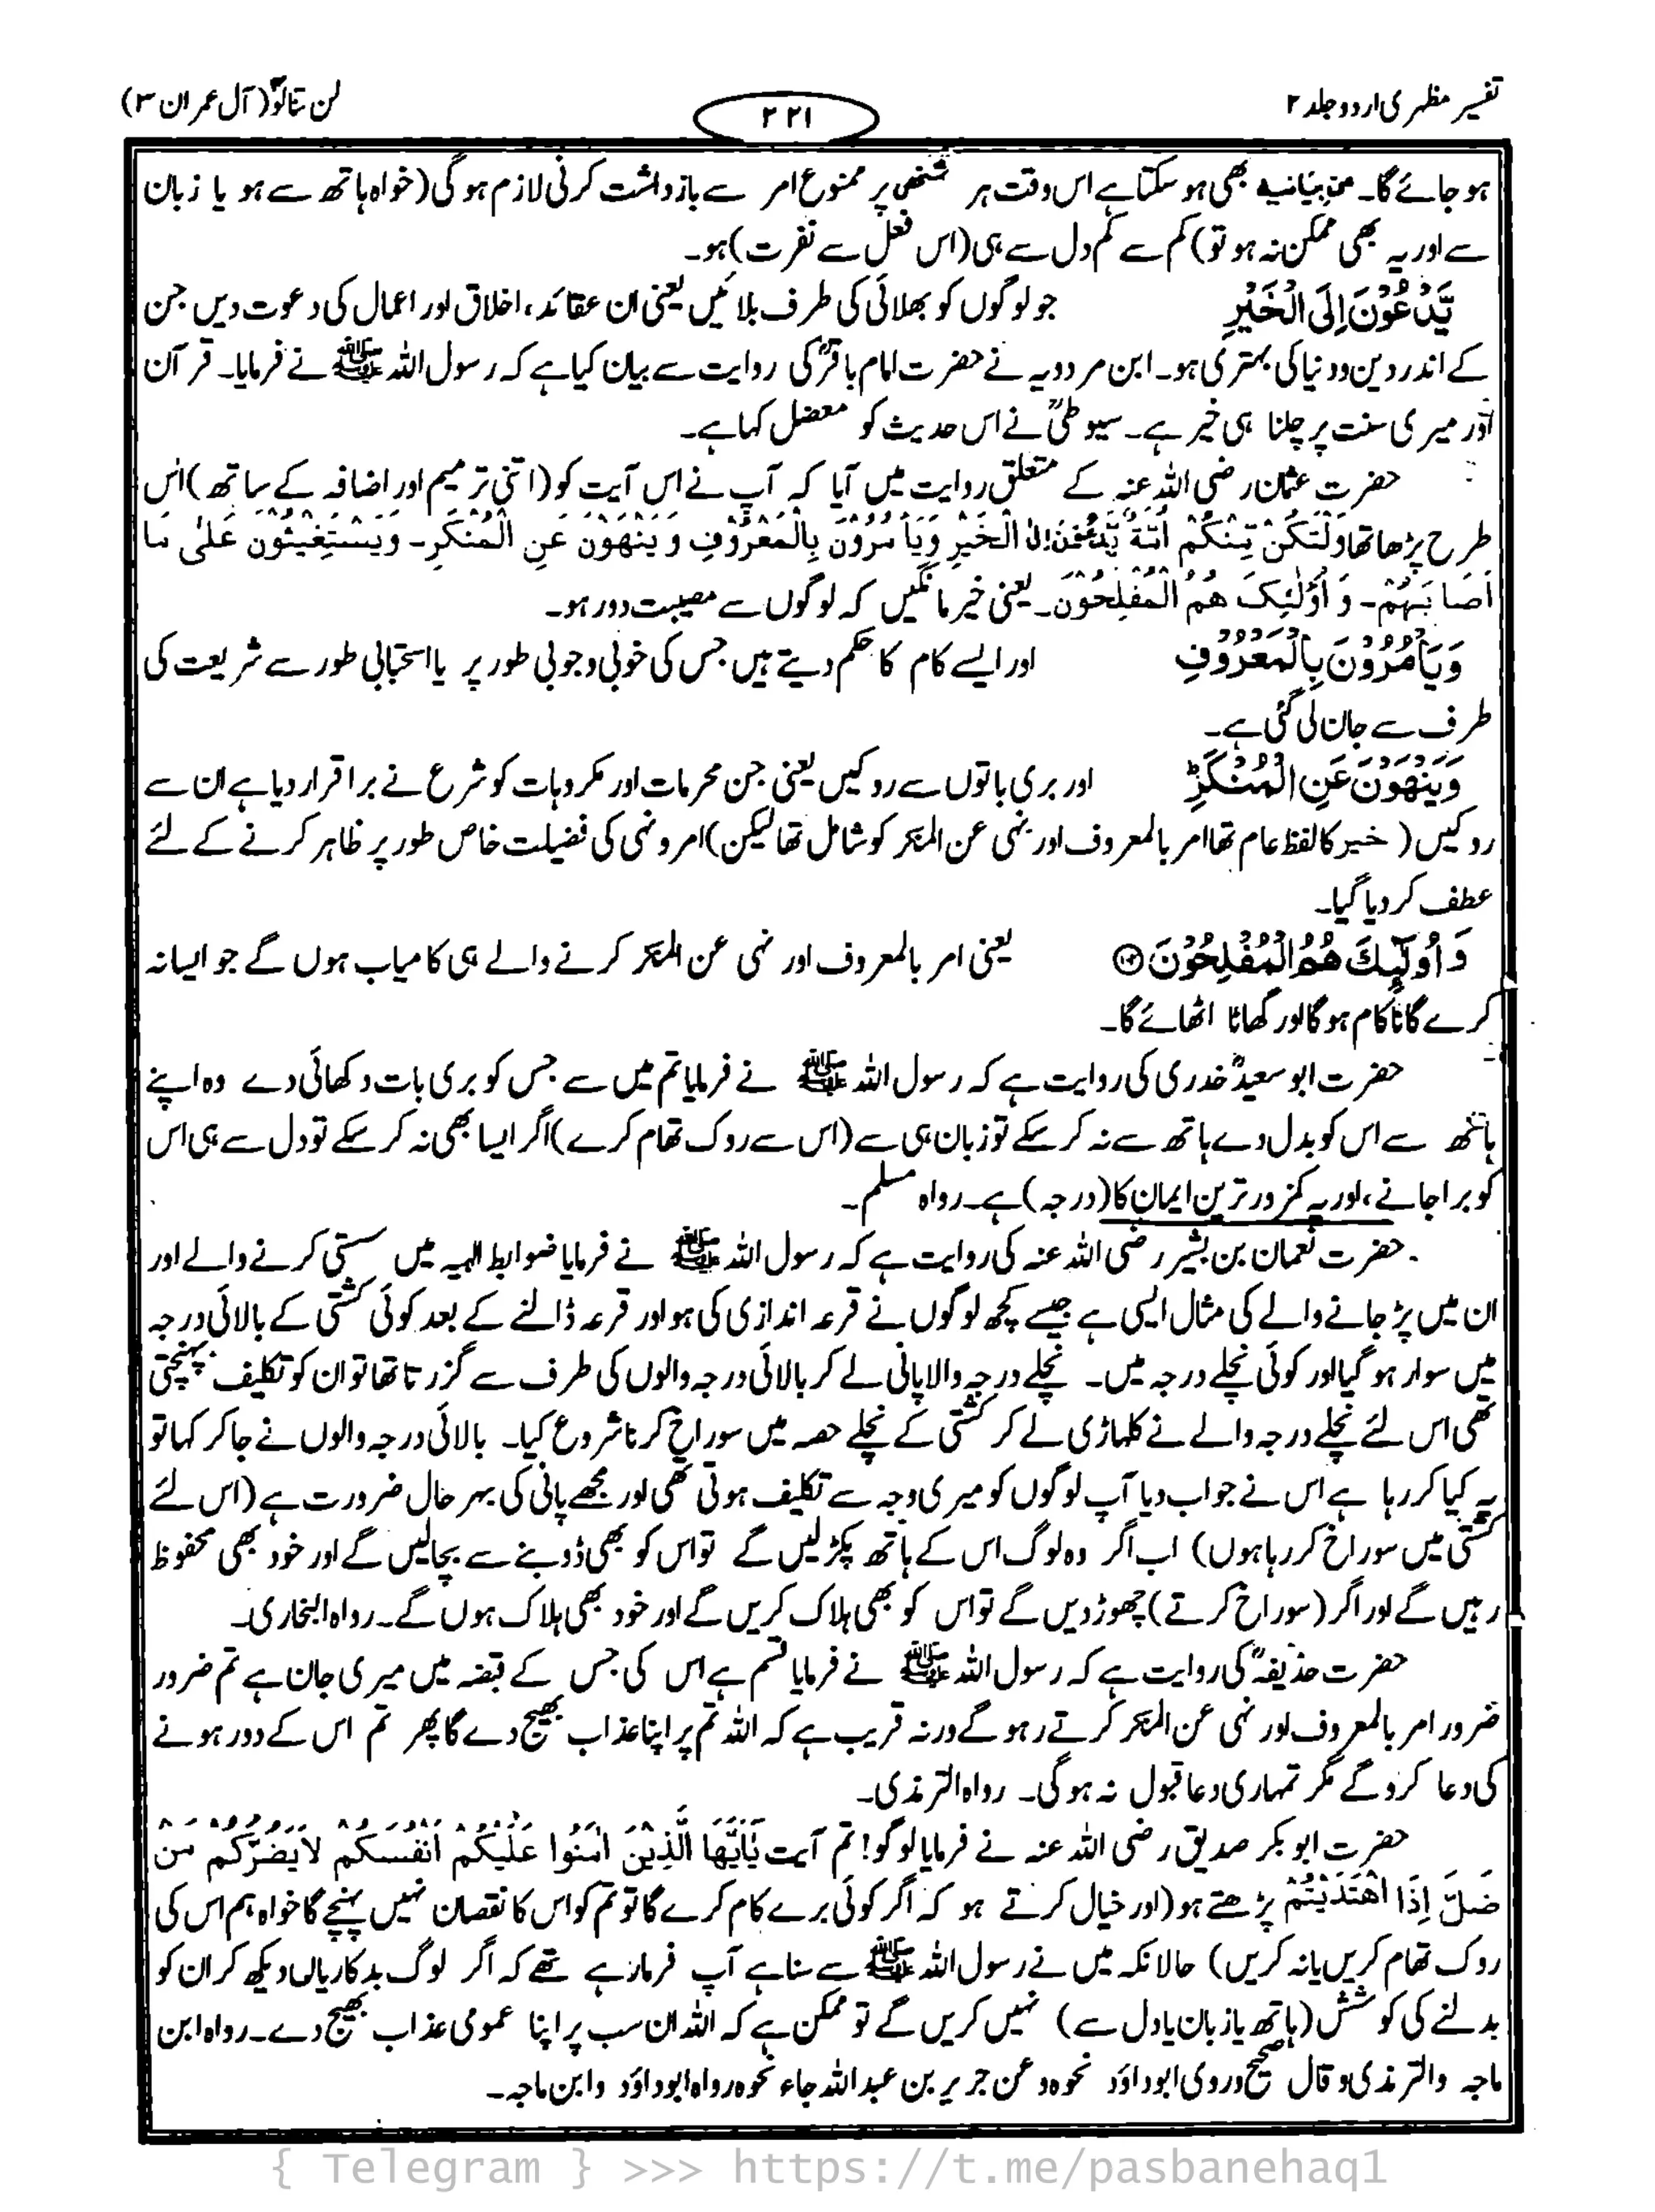 تفسیر مظہری اردو جلد ۲
۲۲۱
لن تنالوا (آل عمران ۳)
ہو جائے گا۔ من بیانیہ بھی ہو سکتا ہے اس وقت ہر شخص پر ممنوع امر سے بازداشت کرنی لازم ہوگی (خواہ ہاتھ سے ہو یا زبان
سے اور یہ بھی ممکن نہ ہو تو) کم سے کم دل سے ہی (اس فعل سے نفرت) ہو۔
یَّدْعُوْنَ اِلَی الْخَیْرِ جو لوگوں کو بھلائی کی طرف بلائیں یعنی ان عقائد، اخلاق اور اعمال کی دعوت دیں جن
کے اندر دین و دنیا کی بہتری ہو۔ ابن مردویہ نے حضرت امام باقرؒ کی روایت سے بیان کیا ہے کہ رسول اللہ ﷺ نے فرمایا۔ قرآن
اور میری سنت پر چلنا ہی خیر ہے۔ سیوطیؒ نے اس حدیث کو معضل کہا ہے۔
حضرت عثمان رضی اللہ عنہ کے متعلق روایت میں آیا کہ آپ نے اس آیت کو (اتنی ترمیم اور اضافہ کے ساتھ) اس
طرح پڑھا تھا وَلْتَكُنْ مِّنْكُمْ اُمَّةٌ یَّدْعُوْنَ اِلَی الْخَیْرِ وَیَأْمُرُوْنَ بِالْمَعْرُوْفِ وَیَنْهَوْنَ عَنِ الْمُنْكَرِ۔ وَیَسْتَغِیْثُوْنَ عَلٰی مَا
اَصَابَهُمْ۔ وَاُولٰئِكَ هُمُ الْمُفْلِحُوْنَ۔ یعنی خیر مانگیں کہ لوگوں سے مصیبت دور ہو۔
وَیَاْمُرُوْنَ بِالْمَعْرُوْفِ اور ایسے کام کا حکم دیتے ہیں جس کی خوبی وجوبی طور پر یا استحبابی طور سے شریعت کی
طرف سے جان لی گئی ہے۔
وَیَنْهَوْنَ عَنِ الْمُنْكَرِؕ اور بری باتوں سے روکیں یعنی جن محرمات اور مکروہات کو شرع نے برا قرار دیا ہے ان سے
روکیں (خیر کا لفظ عام تھا امر بالمعروف اور نہی عن المنکر کو شامل تھا لیکن) امر و نہی کی فضیلت خاص طور پر ظاہر کرنے کے لئے
عطف کر دیا گیا۔
وَاُولٰٓئِكَ هُمُ الْمُفْلِحُوْنَ ۝۱۰۴ یعنی امر بالمعروف اور نہی عن المنکر کرنے والے ہی کامیاب ہوں گے جو ایسا نہ
کرے گا ناکام ہوگا اور گھاٹا اٹھائے گا۔
حضرت ابو سعیدؓ خدری کی روایت ہے کہ رسول اللہ ﷺ نے فرمایا تم میں سے جس کو بری بات دکھائی دے وہ اپنے
ہاتھ سے اس کو بدل دے ہاتھ سے نہ کر سکے تو زبان ہی سے (اس سے روک تھام کرے) اگر ایسا بھی نہ کر سکے تو دل سے ہی اس
کو برا جانے، اور یہ کمزور ترین ایمان کا (درجہ) ہے۔ رواہ مسلم۔
حضرت نعمان بن بشیر رضی اللہ عنہ کی روایت ہے کہ رسول اللہ ﷺ نے فرمایا ضوابط الہیہ میں سستی کرنے والے اور
ان میں پڑ جانے والے کی مثال ایسی ہے جیسے کچھ لوگوں نے قرعہ اندازی کی ہو اور قرعہ ڈالنے کے بعد کوئی کشتی کے بالائی درجہ
میں سوار ہو گیا اور کوئی نچلے درجہ میں۔ نچلے درجہ والا پانی لے کر بالائی درجہ والوں کی طرف سے گزرتا تھا تو ان کو تکلیف پہنچتی
تھی اس لئے نچلے درجہ والے نے کلہاڑی لے کر کشتی کے نچلے حصہ میں سوراخ کرنا شروع کیا۔ بالائی درجہ والوں نے جا کر کہا تو
یہ کیا کر رہا ہے اس نے جواب دیا آپ لوگوں کو میری وجہ سے تکلیف ہوتی تھی اور مجھے پانی کی بہر حال ضرورت ہے (اس لئے
کشتی میں سوراخ کر رہا ہوں) اب اگر وہ لوگ اس کے ہاتھ پکڑ لیں گے تو اس کو بھی ڈوبنے سے بچا لیں گے اور خود بھی محفوظ
رہیں گے اور اگر (سوراخ کرتے) چھوڑ دیں گے تو اس کو بھی ہلاک کریں گے اور خود بھی ہلاک ہوں گے۔ رواہ البخاری۔
حضرت حذیفہؓ کی روایت ہے کہ رسول اللہ ﷺ نے فرمایا قسم ہے اس کی جس کے قبضہ میں میری جان ہے تم ضرور
ضرور امر بالمعروف اور نہی عن المنکر کرتے رہو گے ورنہ قریب ہے کہ اللہ تم پر اپنا عذاب بھیج دے گا پھر تم اس کے دور ہونے
کی دعا کرو گے مگر تمہاری دعا قبول نہ ہوگی۔ رواہ الترمذی۔
حضرت ابو بکر صدیق رضی اللہ عنہ نے فرمایا لوگو! تم آیت یٰٓاَیُّهَا الَّذِیْنَ اٰمَنُوْا عَلَیْكُمْ اَنْفُسَكُمْ لَایَضُرُّكُمْ مَنْ
ضَلَّ اِذَا اهْتَدَیْتُمْ پڑھتے ہو (اور خیال کرتے ہو کہ اگر کوئی برے کام کرے گا تو تم کو اس کا نقصان نہیں پہنچے گا خواہ ہم اس کی
روک تھام کریں یا نہ کریں) حالانکہ میں نے رسول اللہ ﷺ سے سنا ہے آپ فرما رہے تھے کہ اگر لوگ بدکاریاں دیکھ کر ان کو
بدلنے کی کوشش (ہاتھ یا زبان یا دل سے) نہیں کریں گے تو ممکن ہے کہ اللہ ان سب پر اپنا عمومی عذاب بھیج دے۔ رواہ ابن
ماجہ والترمذی و قال صحیح وروی ابوداؤد نحوہ وعن جریر بن عبداللہ جاء نحوہ رواہ ابوداؤد وابن ماجہ۔
{ Telegram } >>> https://t.me/pasbanehaq1